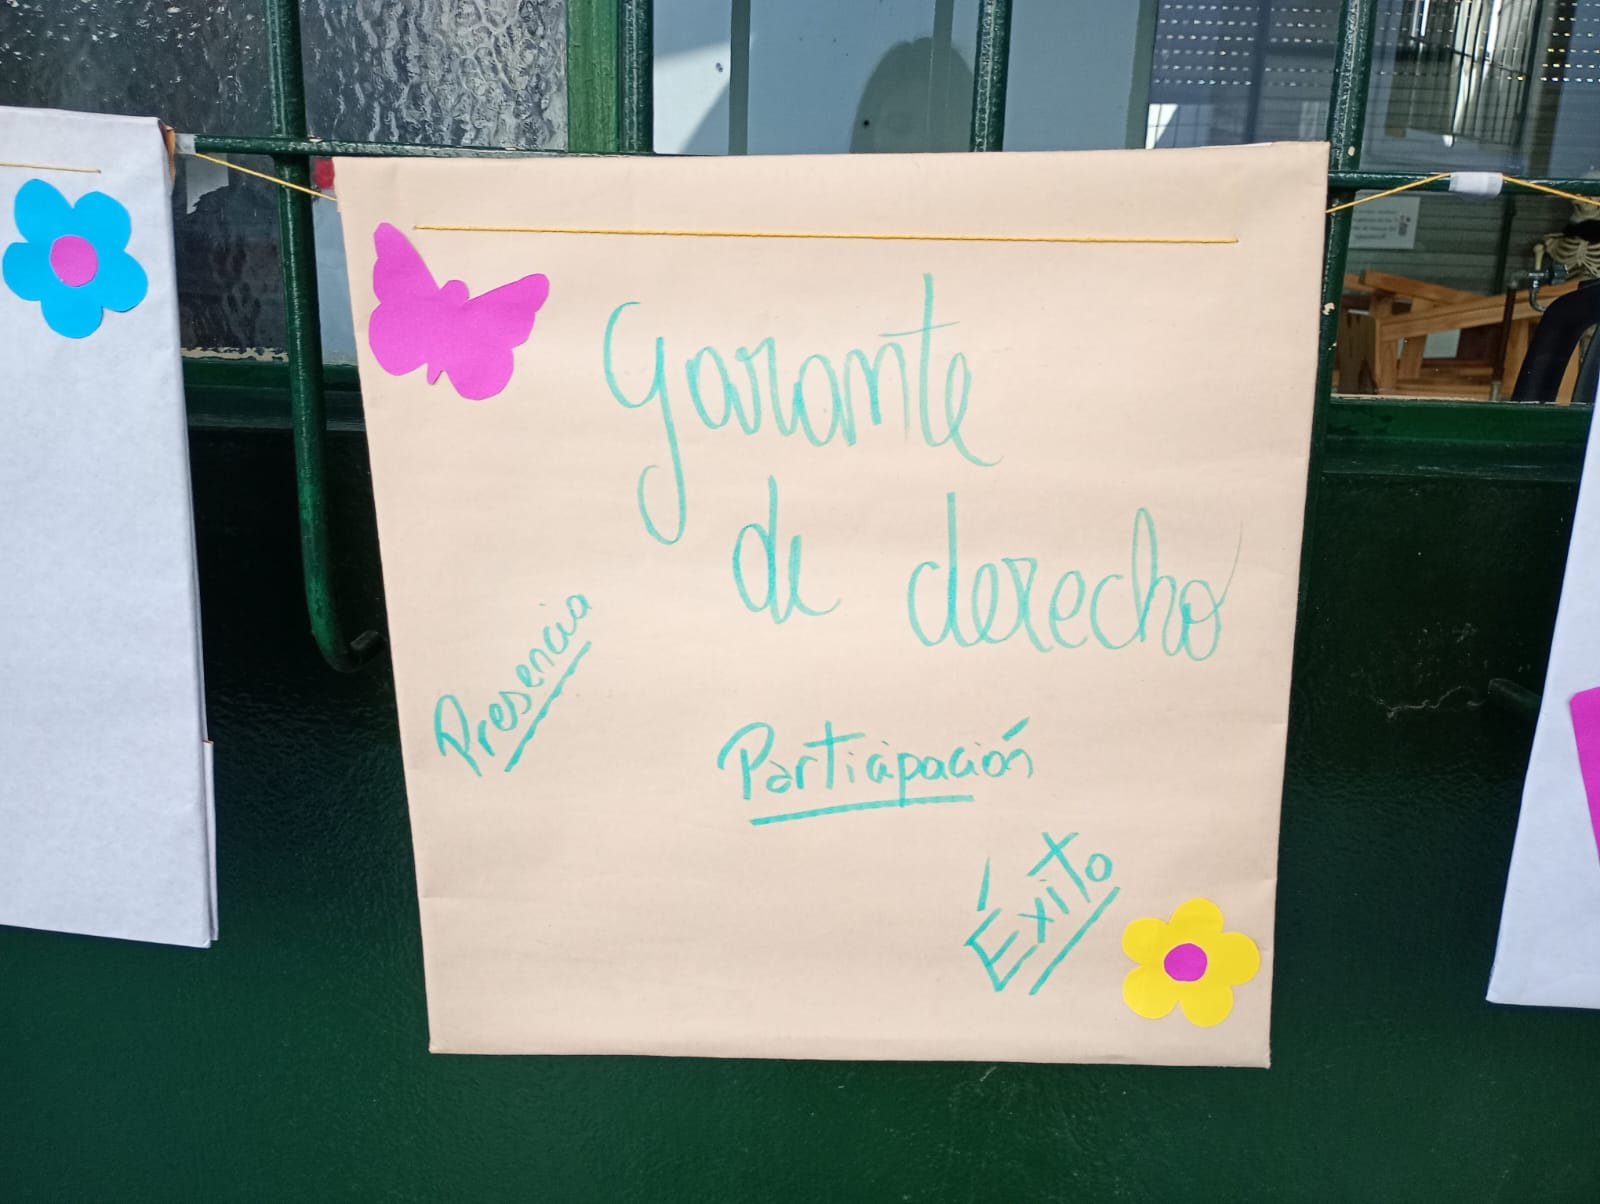 Garante
de derecho
Presencia
Participación
Éxito